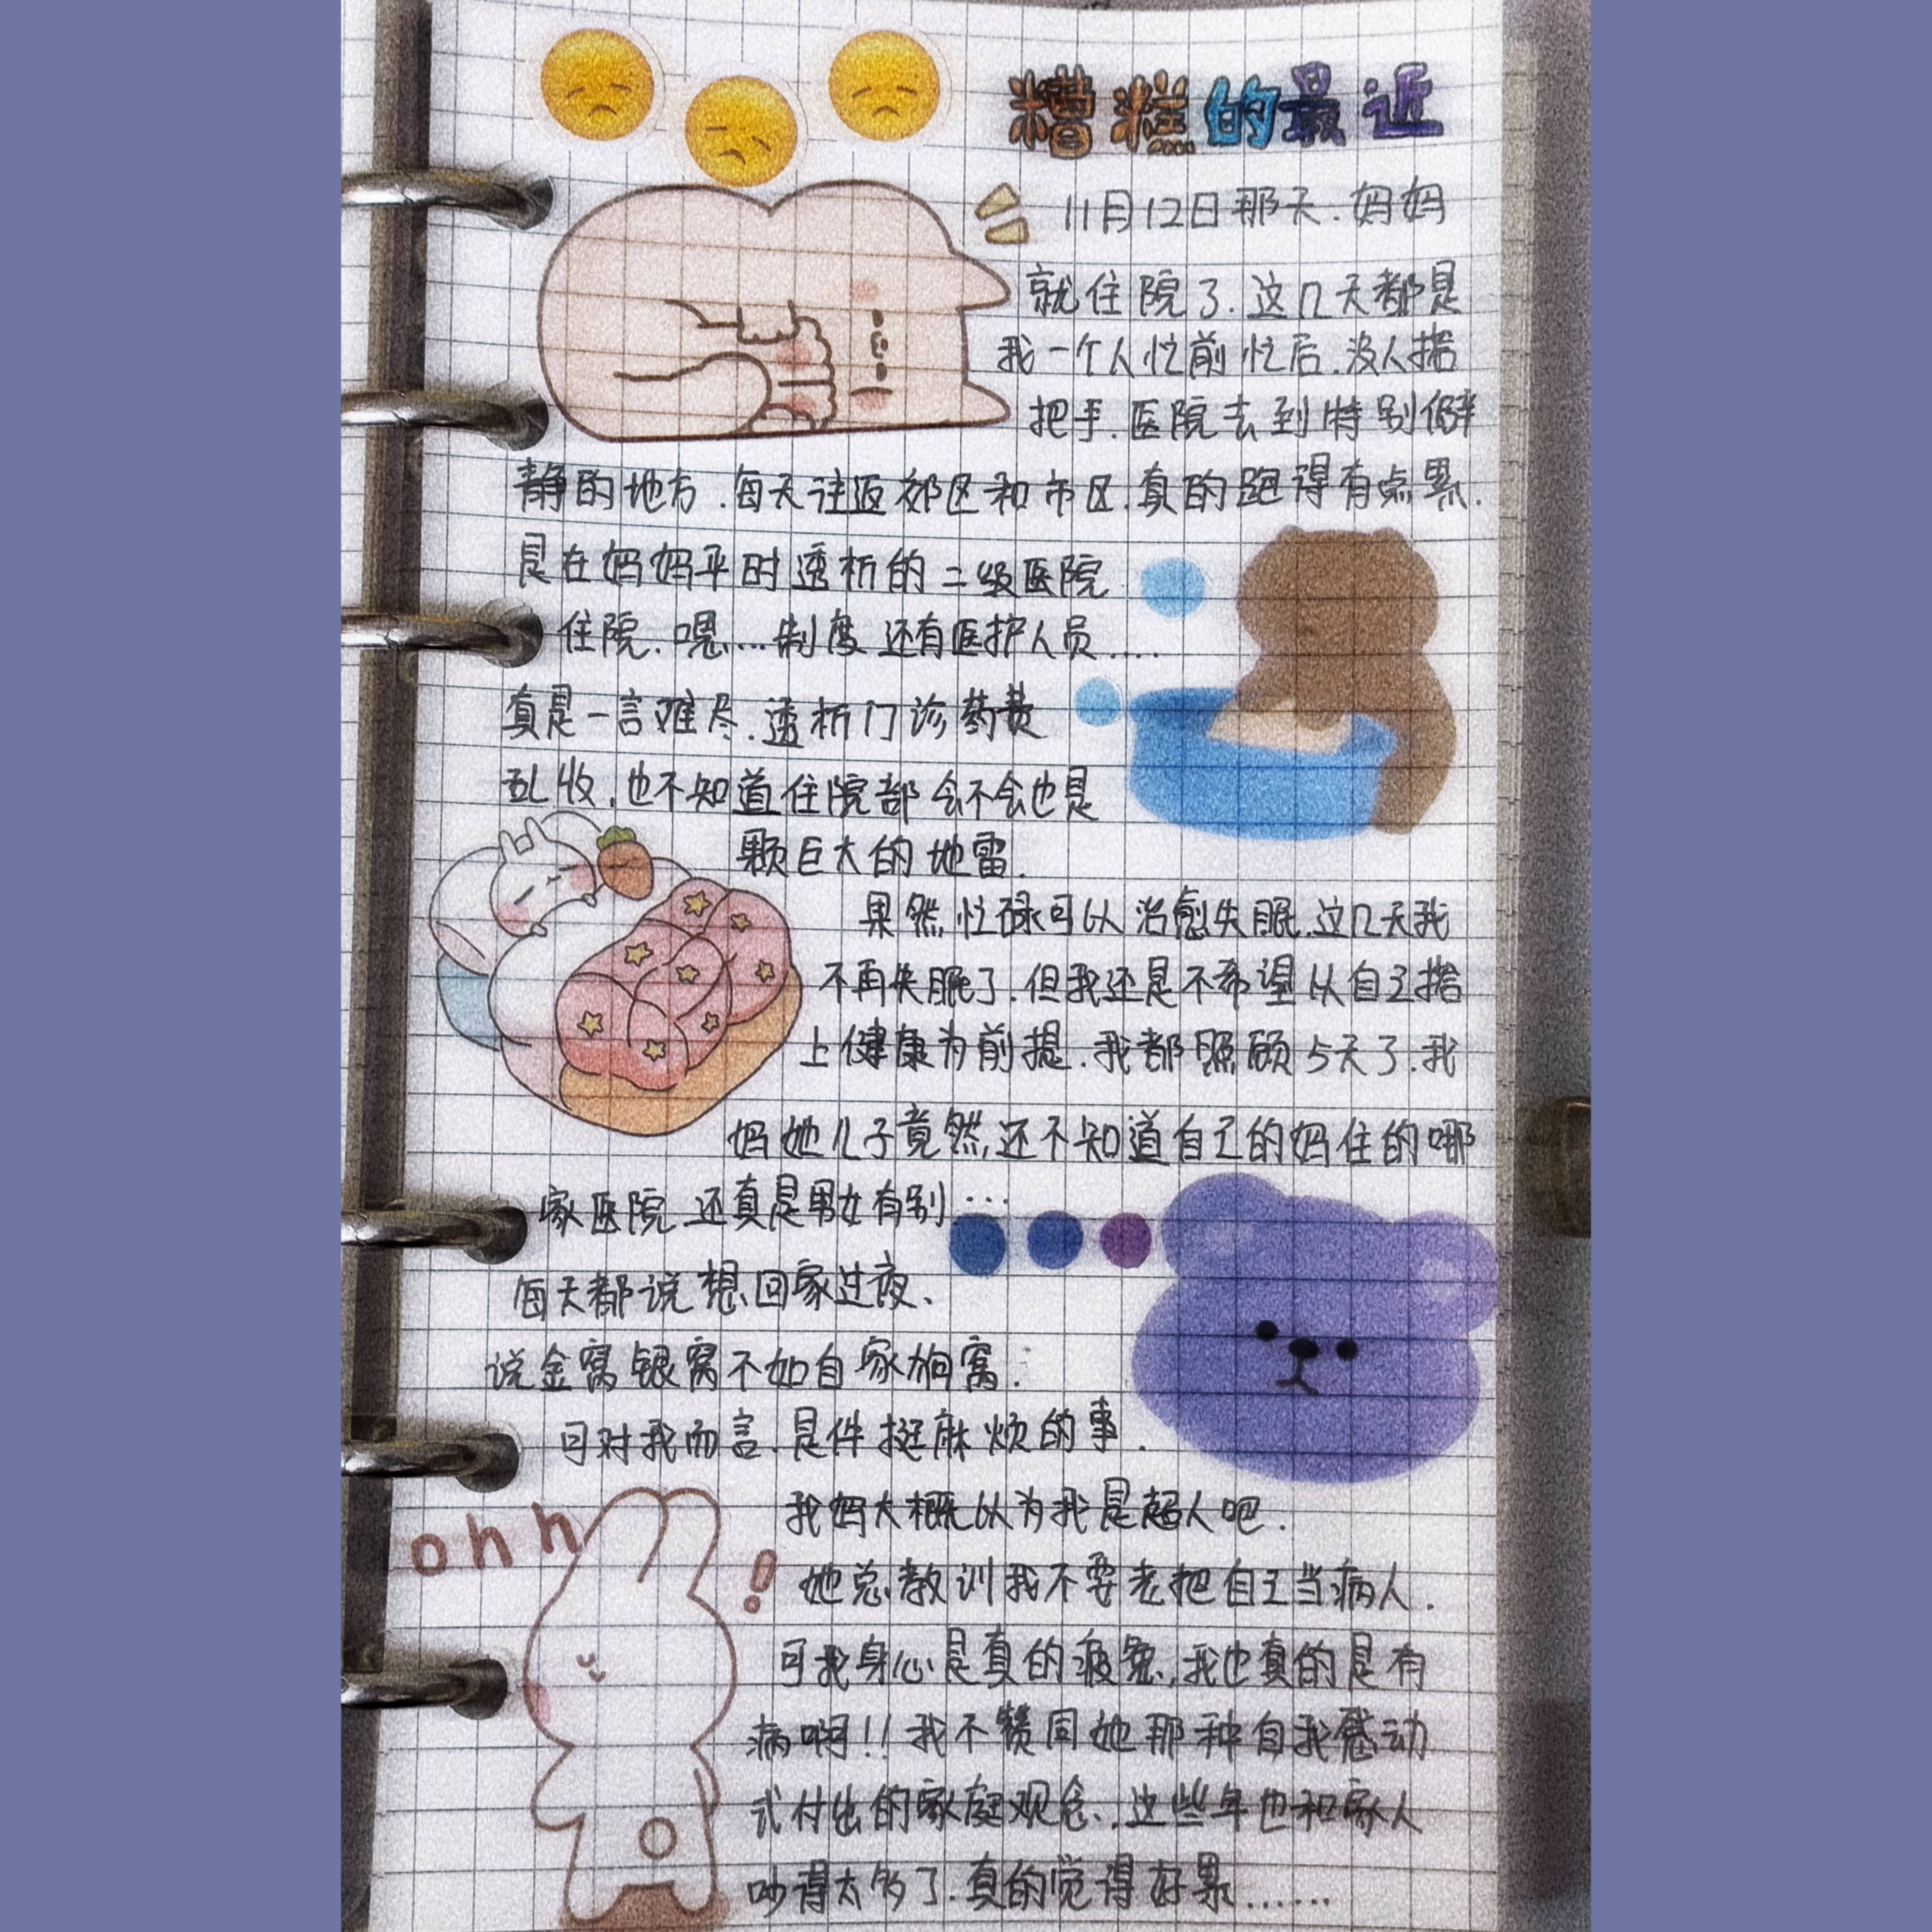 糟糕的最近
11月12日那天.妈妈
就住院了.这几天都是
我一个人忙前忙后.没人搭
把手.医院去到特别僻
静的地方.每天往返郊区和市区.真的跑得有点累.
是在妈妈平时透析的二级医院
住院.嗯...制度还有医护人员....
真是一言难尽.透析门诊药费
乱收.也不知道住院部会不会也是
颗巨大的地雷.
果然忙碌可以治愈失眠.这几天我
不再失眠了.但我还是不希望以自己搭
上健康为前提.我都照顾5天了.我
妈她儿子竟然还不知道自己的妈住的哪
家医院 还真是男女有别...
每天都说想回家过夜、
说金窝银窝不如自家狗窝.
可对我而言.是件挺麻烦的事.
ohh
!
我妈大概以为我是超人吧.
她总教训我不要老把自己当病人.
可我身心是真的疲惫,我也真的是有
病啊!!我不赞同她那种自我感动
式付出的家庭观念.这些年也和家人
吵得太多了.真的觉得好累......